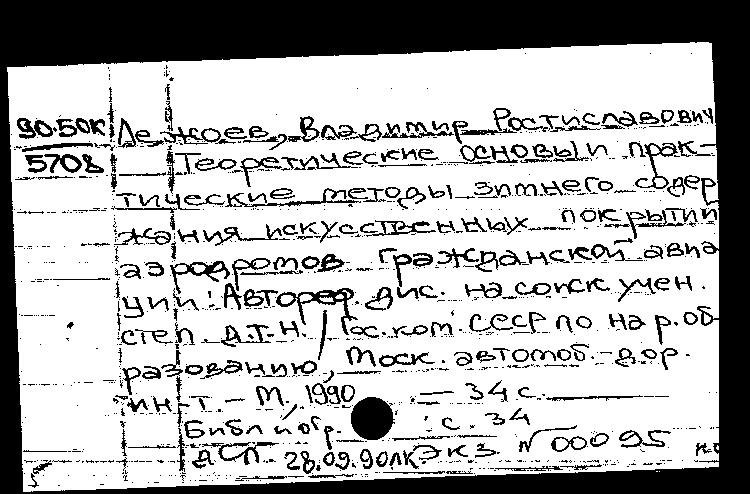 90.50к
5708
Лежоев, Владимир Ростиславович
Теоретические основы и прак-
тические методы зимнего содер
жания искусственных покрытий
аэродромов гражданской авиа
ции: Автореф. дис. на соиск. учен.
степ. д.т.н. / Гос. ком. СССР по нар. об-
разованию, Моск. автомоб.-дор.
ин-т. - М., 1990 . — 34 с.
Библиогр. : с. 34
ДСП. 28.09.90ЛК. Экз N 00095